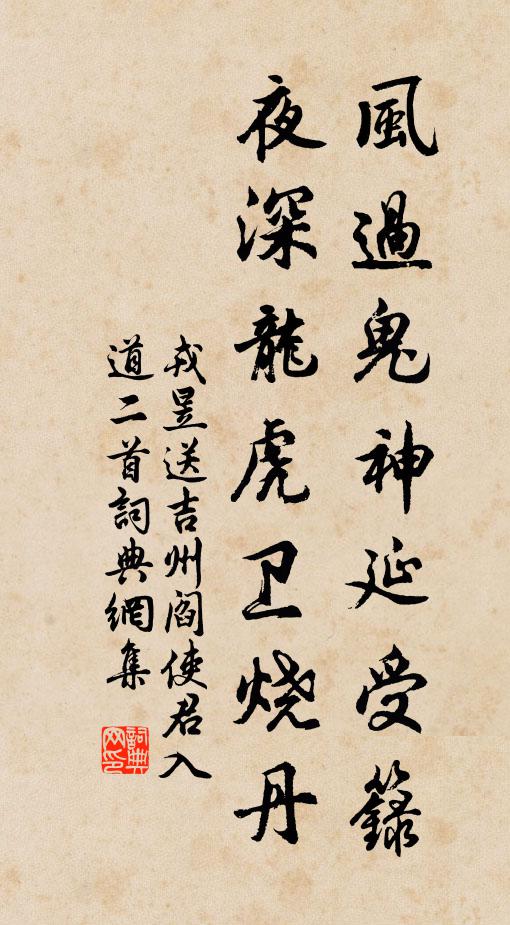 風過鬼神延受籙
夜深龍虎卫烧丹
戎昱送吉州閻使君入
道二首詞典網集
詞典
网印